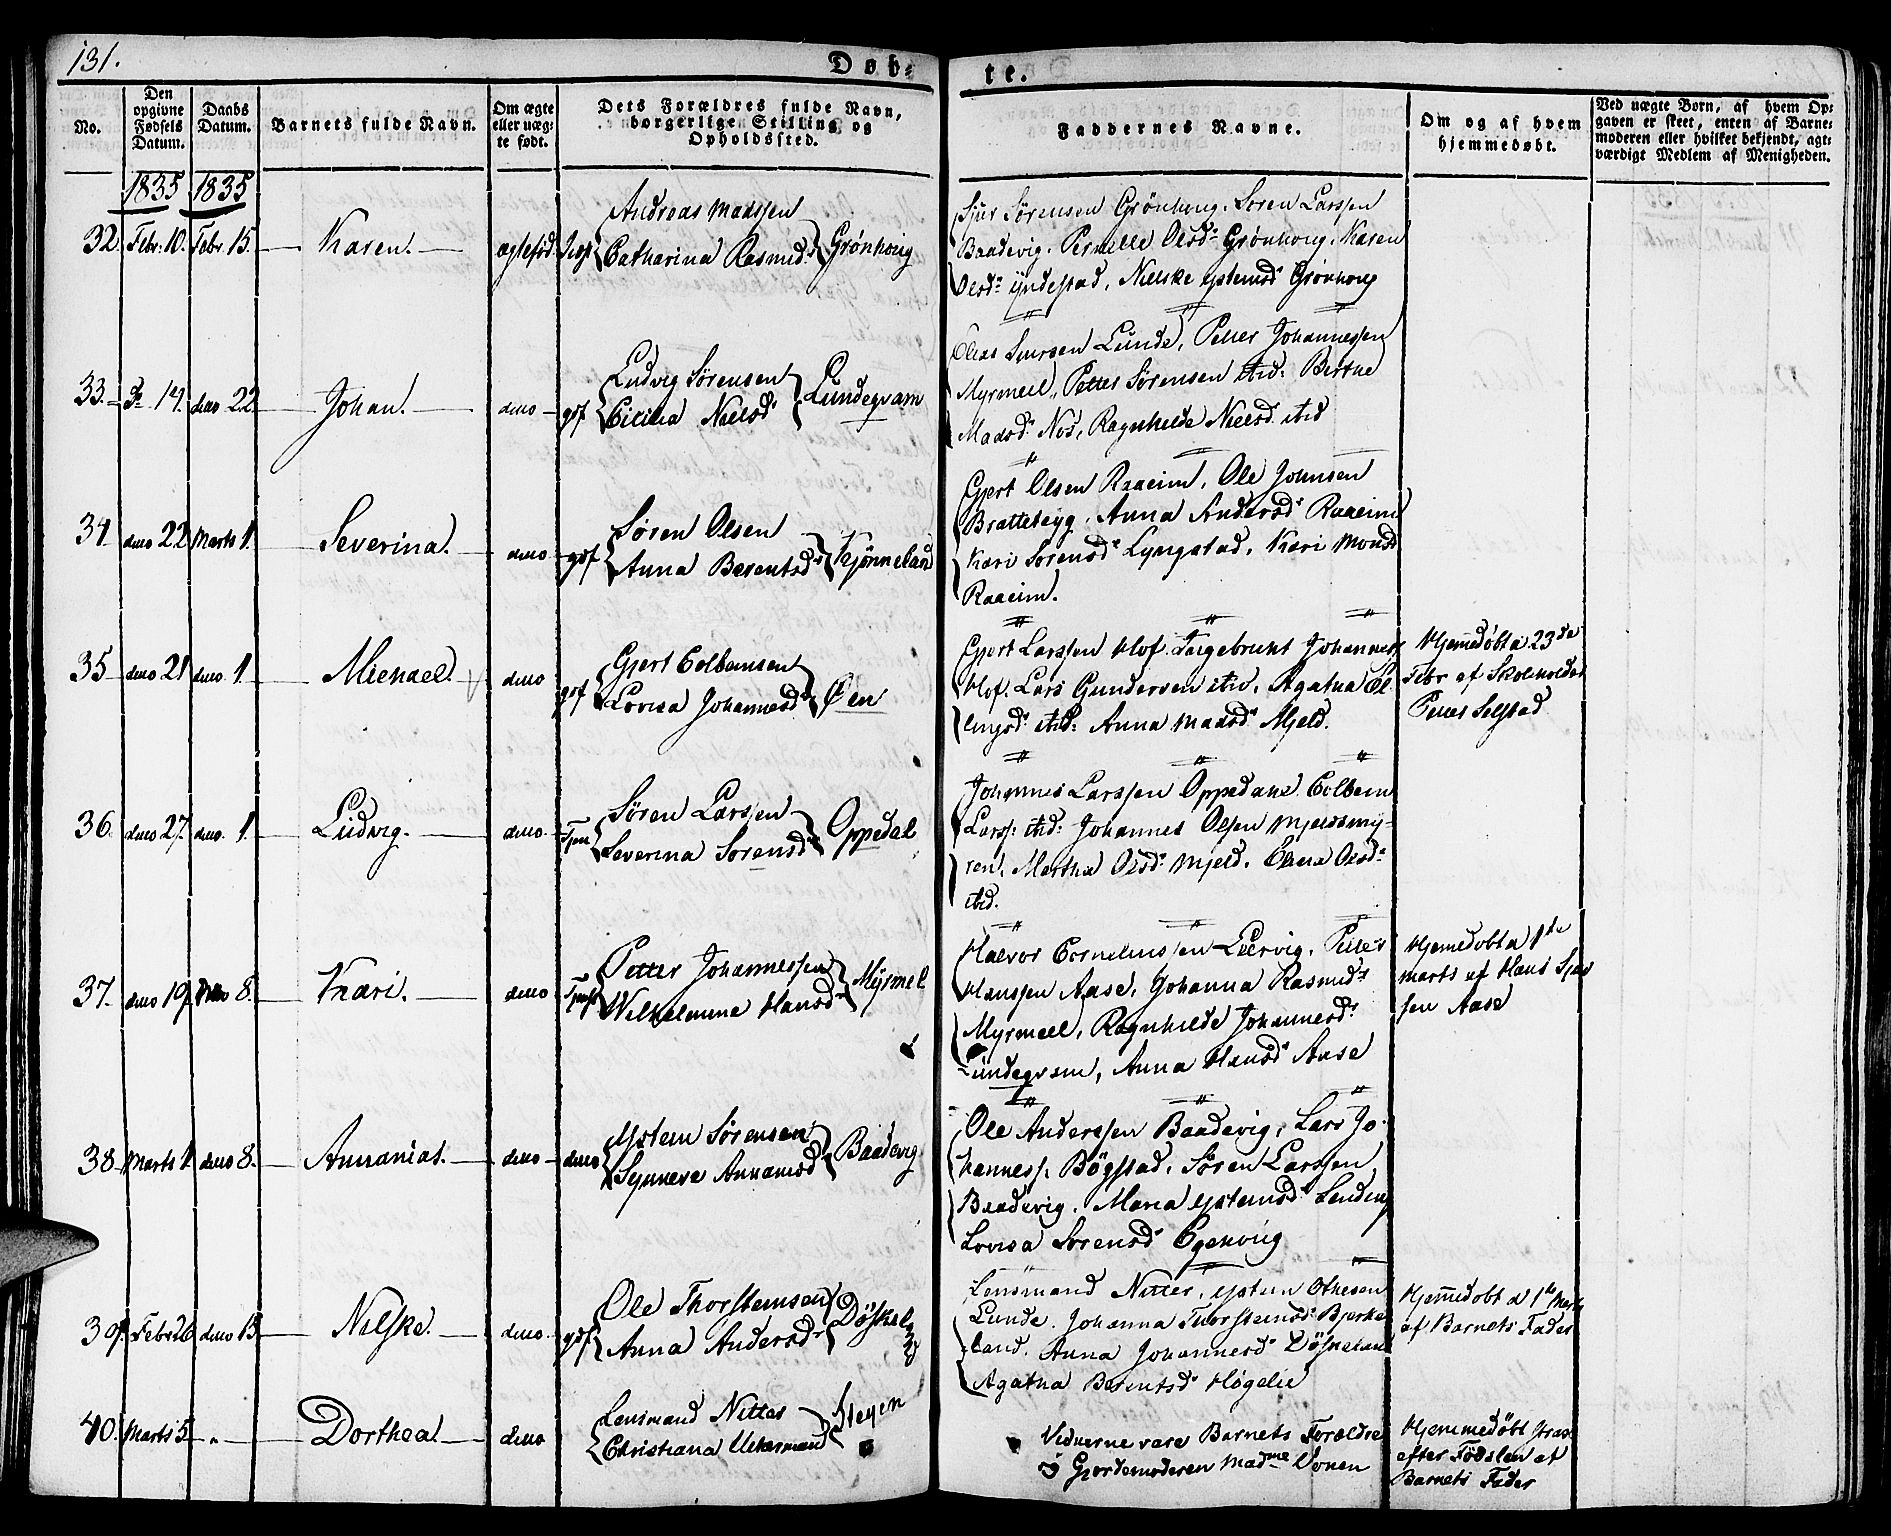 131.
Døb-
te.
No.
Den opgivne Fødsels Datum.
Daabs Datum.
Barnets fulde Navn.
Om ægte eller uæg-te født.
Dets Forældres fulde Navn, borgerlige Stilling og Opholdssted.
Faddernes Navne.
Om og af hvem hjemmedøbt.
Ved uægte Børn, af hvem Op-gaven er skeet, enten af Barne-moderen eller hvilket bekjendt, agt-værdigt Medlem af Menigheden.
1835 1835
32. Febr. 10. Febr. 15. Karen. ægtefød.
Andreas Madssen
Catharina Rasmusd. Grønhoug
Sjur Sørensen Grønhoug, Søren Larssen
Baadevig, Pernelle Olsd. Grønhoug, Karen
Olsd. Yndestad, Nilske Ystensd. Grønhoug
33. 14. dito 22. Johan. dito gdf
Ludvig Sørensen
Cicilia Nielsd. Lundeqvam
Elias Sjursen Lunde, Petter Johannessen
Myrmeel, Petter Sørensen ibid: Berthe
Madsd. Nos, Ragnhilde Nielsd. ibid
34. dito 22. Marts 1. Severina. dito gdf
Søren Olsen
Anna Berentsd. Kjønneland
Gjert Olsen Raaeim, Ole Johnsen
Bratteteyg, Anna Andersd. Raaeim
Kari Sørensd. Lyngstad, Kari Monsd.
Raaeim.
35 dito 21 dito 1. Michael. dito gdf
Gjert Colbensen
Lovisa Johannesd. Øen
Gjert Larssen Hof. Ingebricht Johannes.
Hof. Lars Gundersen ibid, Agatha El-
lingsd. ibid: Anna Madsd. Mjeld.
Hjemmedøbt d 23de
Febr af Skoleholder
Petter Selstad
36. dito 27. dito 1. Ludvig. dito
Søren Larssen
Severina Sørensd. Oppedal
Johannes Larssen Oppedahl Colben
Larss: ibid: Johannes Olsen Mjeldsmy-
ren, Martha Olsd. Mjeld, Elena Olsd.
ibid.
37. dito 19. dito 8. Kari. dito
Petter Johannessen
Wilhelmine Hansd. Myrmel
Halvor Corneliussen Leervig, Petter
Hanssen Aase, Johanna Rasmusd.
Myrmeel, Ragnhilde Johannesd.
Lundeqvam, Anna Hansd. Aase
Hjemedøbt d 1ste
Marts af Hans
sen Aase
38. Marts 1 dito 8. Annanias. dito dito
Ysten Sørensen
Synneve Annanisd. Baadevig
Ole Anderssen Baadevig, Lars Jo-
hanness. Bøgstad, Søren Larssen
Baadevig, Maria Ystensd. Lending
Lovisa Sørensd. Egehoug
39. Febr 26 dito 15. Nilske. dito gdf
Ole Thorstensen
Anna Andersd. Døskeland
Lensmand Nitter, Ysten Othesen
Lunde. Johanna Thorstensd. Bjerke-
land, Anna Johannesd. Døskeland
Agatha Berentsd. Høgelie
Hjemedøbt d 1ste Marts
af Barnets Fader
40. Marts 5 " Dorthea. dito
Lensmand Nitter
Christiana Uckermand Steyen
Vidnerne vare Barnets Forældre
og Gjordemoderen Madme Vonen
Hjemmedøbt strax
efter Fødslen af
Barnets Fader